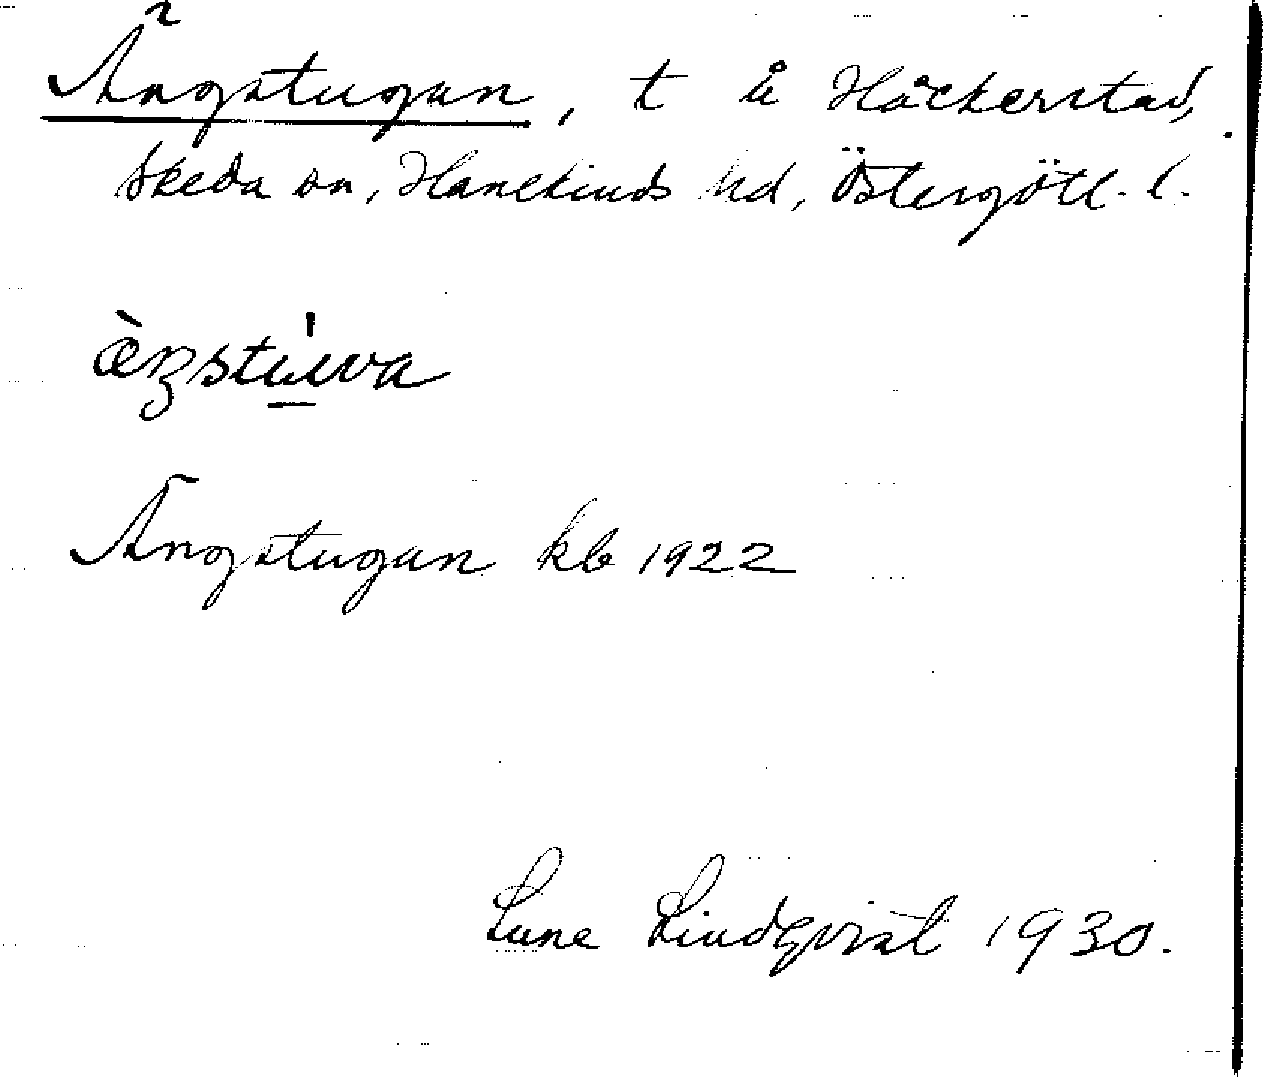 Ängstugan, t å Håckerstad,
Skeda sn, Hanekinds hd, Östergötl. l.
æ̀ŋstu̠̍wa
Ängstugan kb 1922
Sune Lindqvist 1930.